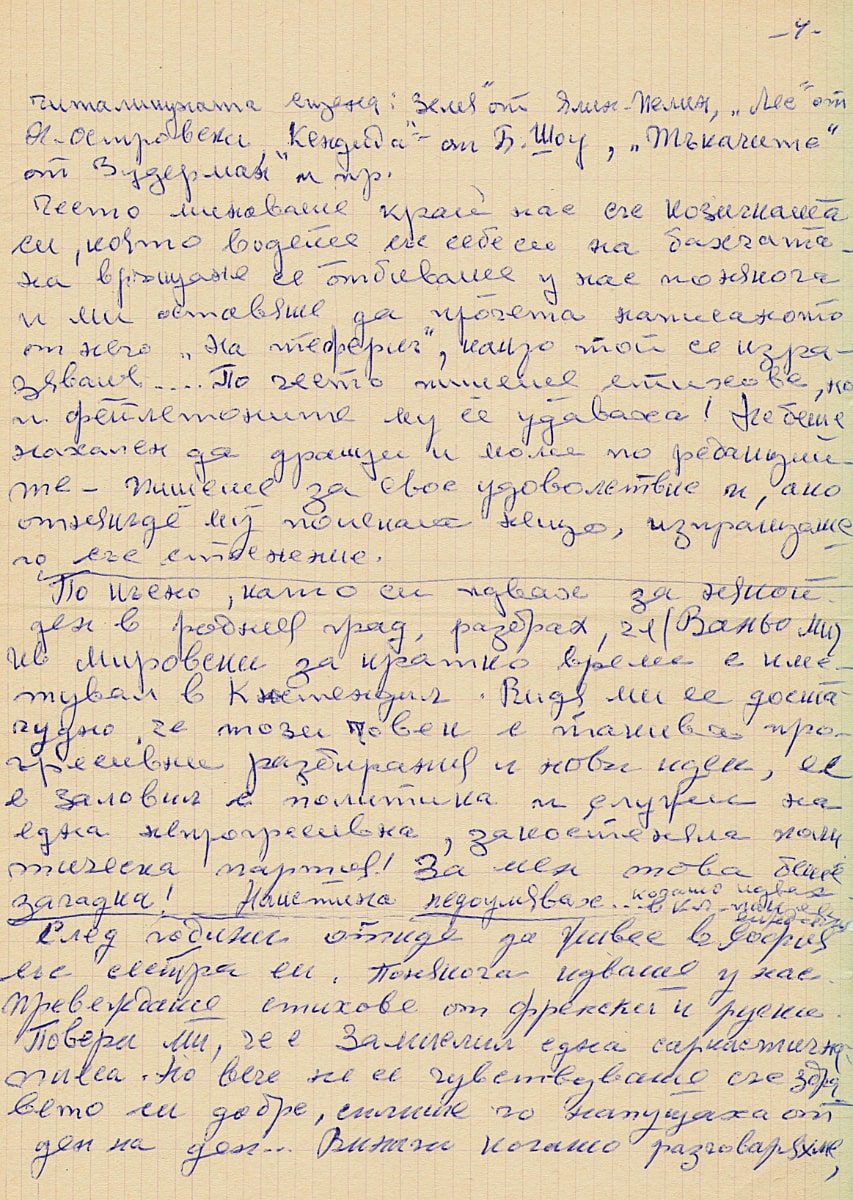 -4-
читалищната сцена: „Земя" от Елин-Пелин, „Лес" от
Н. Островски, „Кандида" - от Б. Шоу, „Тъкачите"
от Зудерман" и пр.
Често минаваше край нас със козичката
си, която водеше със себе си на бахчата -
на връщане се отбиваше у нас понякога
и ми оставяше да прочета написаното
от него „на теферич", както той се изра-
зяваше.... По често пишеше стихове, но
и фейлетоните му се удаваха! Не беше
нахален да дращи и моли по редакции-
те - пишеше за свое удоволствие и, ако
отнякъде му поискат нещо, изпращаше
го със стеснение.
По късно, като си идвах за някой
ден в родния град, разбрах, че (Ваньо Ми)
Ив Мировски за кратко време е кме-
тувал в Кюстендил. Видя ми се доста
чудно, че този човек с такива про-
гресивни разбирания и нови идеи, се
е заловил с политика и служи на
една непрогресивна, закостеняла поли
тическа партия! За мен това беше
загадка! Наистина недоумявах... когато идвах
в Кл.
След години отиде да живее в София
със сестра си. Понякога идваше у нас.
Превеждаше стихове от френски и руски.
Повери ми, че е замислил една саркастична
пиеса. Но вече не се чувствуваше със здра
вето си добре, силите го напущаха от
ден на ден... Винаги когато разговаряхме,